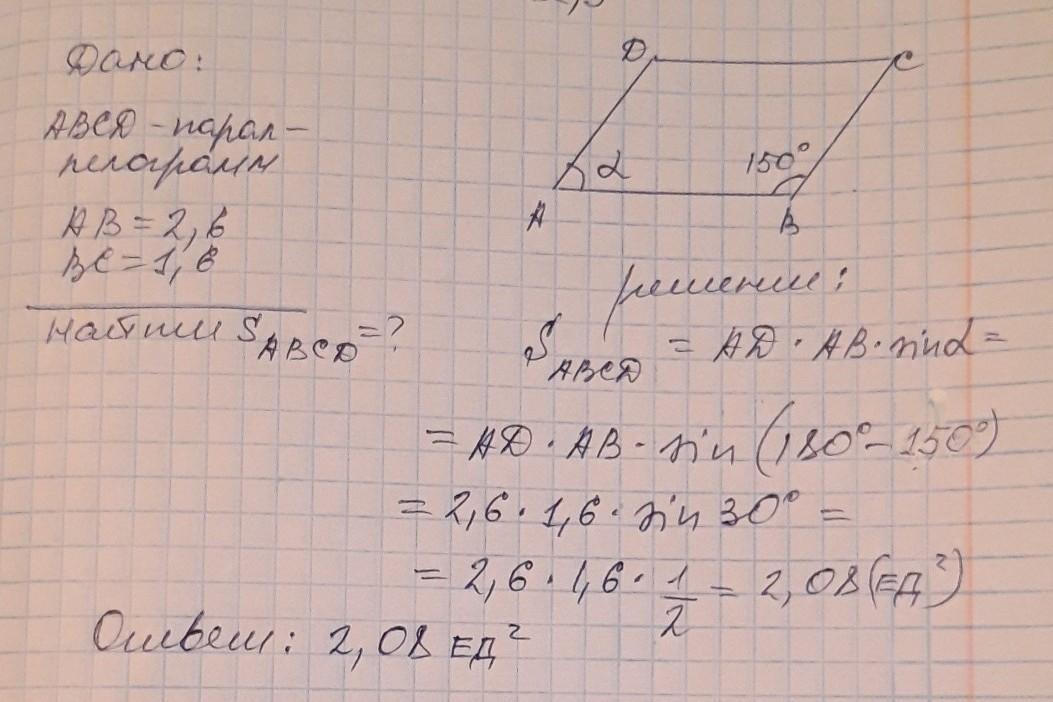 Дано:
ABCD - парал-
лелограмм
AB = 2,6
BC = 1,6
Найти S ABCD = ?
D C
α 150°
A B
решение:
S ABCD = AD · AB · sin α =
= AD · AB · sin (180° - 150°)
= 2,6 · 1,6 · sin 30° =
= 2,6 · 1,6 · 1/2 = 2,08 (ЕД²)
Ответ: 2,08 ЕД²